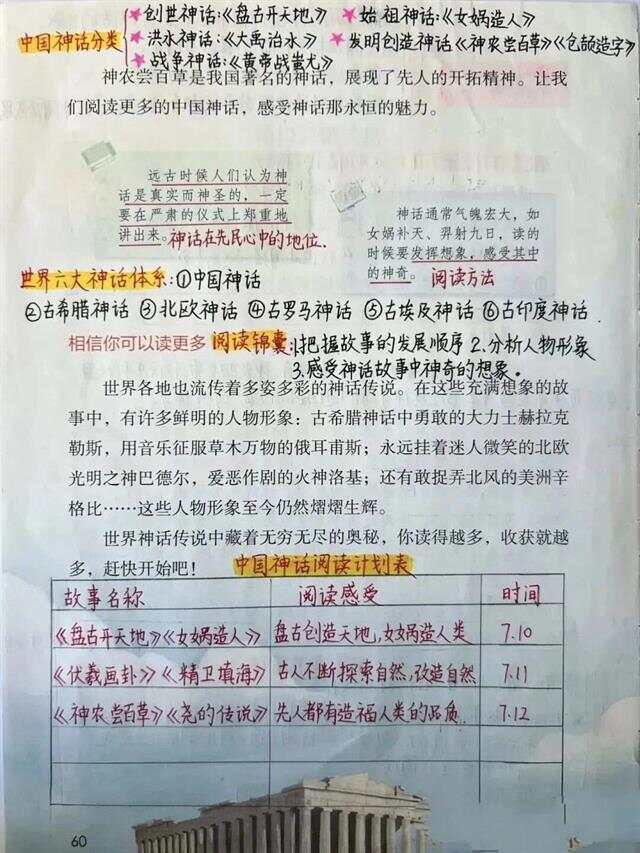 ★创世神话:《盘古开天地》 ★始祖神话:《女娲造人》
中国神话分类 ★洪水神话:《大禹治水》 ★发明创造神话《神农尝百草》《仓颉造字》
★战争神话:《黄帝战蚩尤》
神农尝百草是我国著名的神话，展现了先人的开拓精神。让我
们阅读更多的中国神话，感受神话那永恒的魅力。
远古时候人们认为神
话是真实而神圣的，一定
要在严肃的仪式上郑重地
讲出来。神话在先民心中的地位.
神话通常气魄宏大，如
女娲补天、羿射九日，读的
时候要发挥想象，感受其中
的神奇。 阅读方法
世界六大神话体系:①中国神话
②古希腊神话 ③北欧神话 ④古罗马神话 ⑤古埃及神话 ⑥古印度神话.
相信你可以读更多 阅读锦囊:1.把握故事的发展顺序 2.分析人物形象
3.感受神话故事中神奇的想象。
世界各地也流传着多姿多彩的神话传说。在这些充满想象的故
事中，有许多鲜明的人物形象：古希腊神话中勇敢的大力士赫拉克
勒斯，用音乐征服草木万物的俄耳甫斯；永远挂着迷人微笑的北欧
光明之神巴德尔，爱恶作剧的火神洛基；还有敢捉弄北风的美洲辛
格比……这些人物形象至今仍然熠熠生辉。
世界神话传说中藏着无穷无尽的奥秘，你读得越多，收获就越
多，赶快开始吧！ 中国神话阅读计划表
故事名称 阅读感受 时间
《盘古开天地》《女娲造人》 盘古创造天地,女娲造人类 7.10
《伏羲画卦》《精卫填海》 古人不断探索自然,改造自然 7.11
《神农尝百草》《尧的传说》 先人都有造福人类的品质. 7.12
60